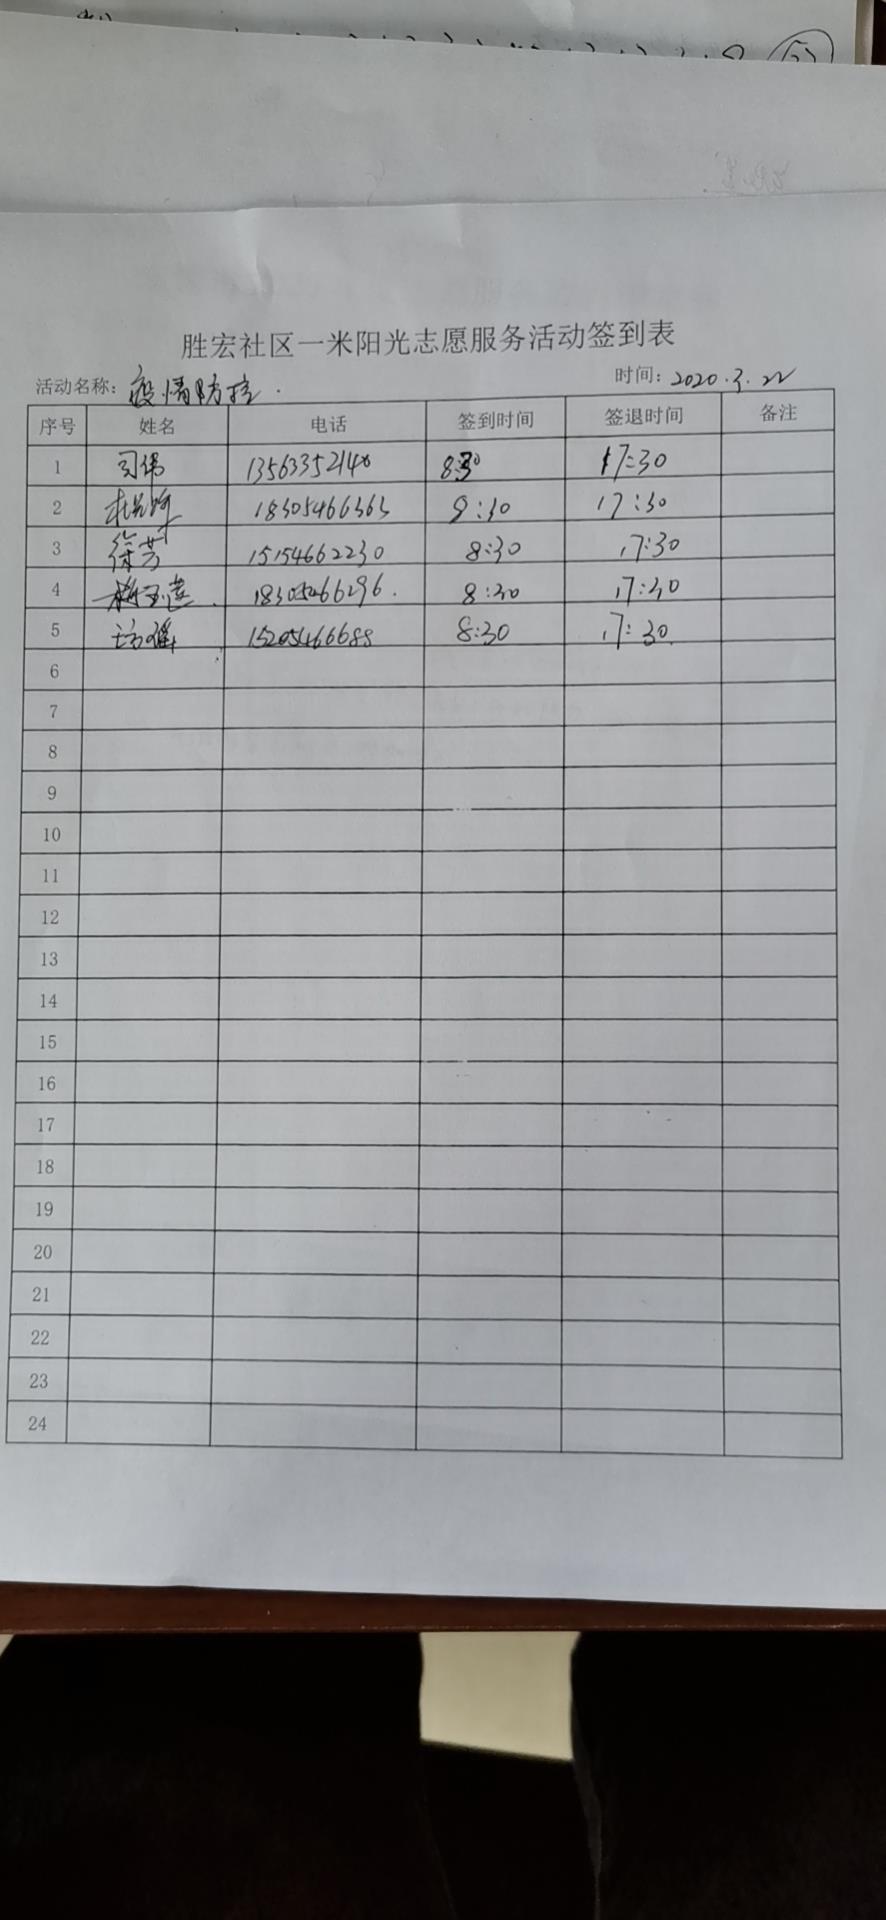 胜宏社区一米阳光志愿服务活动签到表
活动名称: 疫情防控. 时间: 2020.3.22
序号 姓名 电话 签到时间 签退时间 备注
1 司伟 13563352140 8:30 17:30
2 18305466363 8:30 17:30
3 徐芳 15154662230 8:30 17:30
4 18305466296. 8:30 17:30
5 15205466688 8:30 17:30.
6
7
8
9
10
11
12
13
14
15
16
17
18
19
20
21
22
23
24